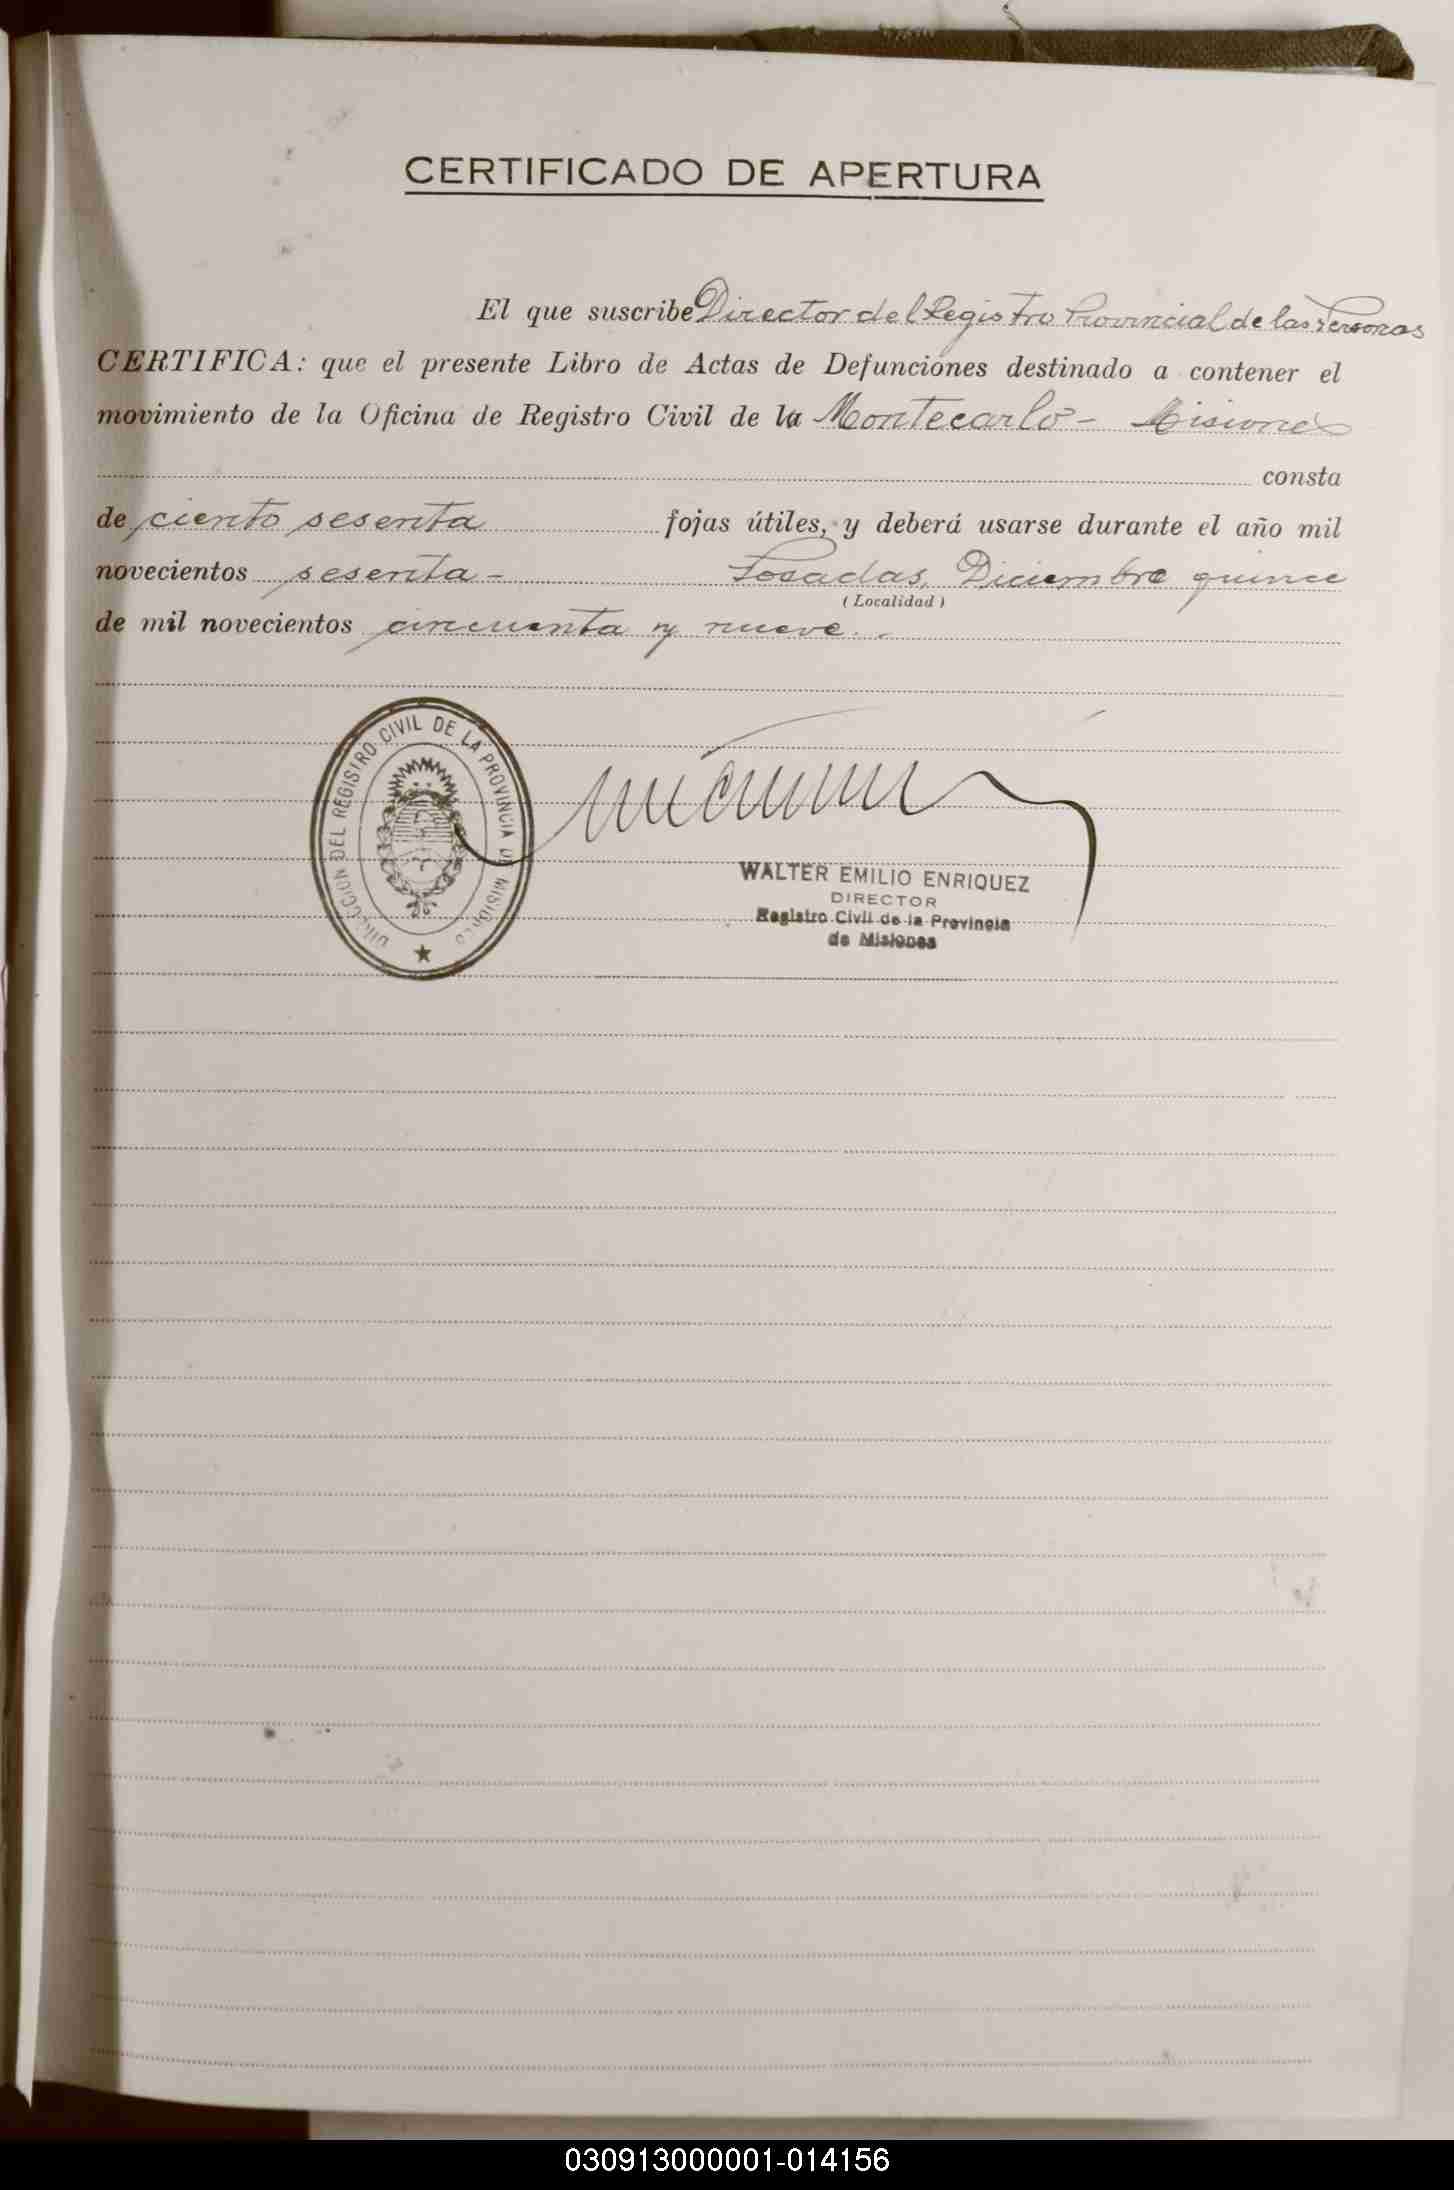 CERTIFICADO DE APERTURA
El que suscribe Director del Registro Provincial de las Personas
CERTIFICA: que el presente Libro de Actas de Defunciones destinado a contener el
movimiento de la Oficina de Registro Civil de la Montecarlo - Misiones
consta
de ciento sesenta fojas útiles, y deberá usarse durante el año mil
novecientos sesenta - Posadas, Diciembre quince
(Localidad)
de mil novecientos cincuenta y nueve.-
DIRECCION DEL REGISTRO CIVIL DE LA PROVINCIA DE MISIONES
WALTER EMILIO ENRIQUEZ
DIRECTOR
Registro Civil de la Provincia
de Misiones
030913000001-014156